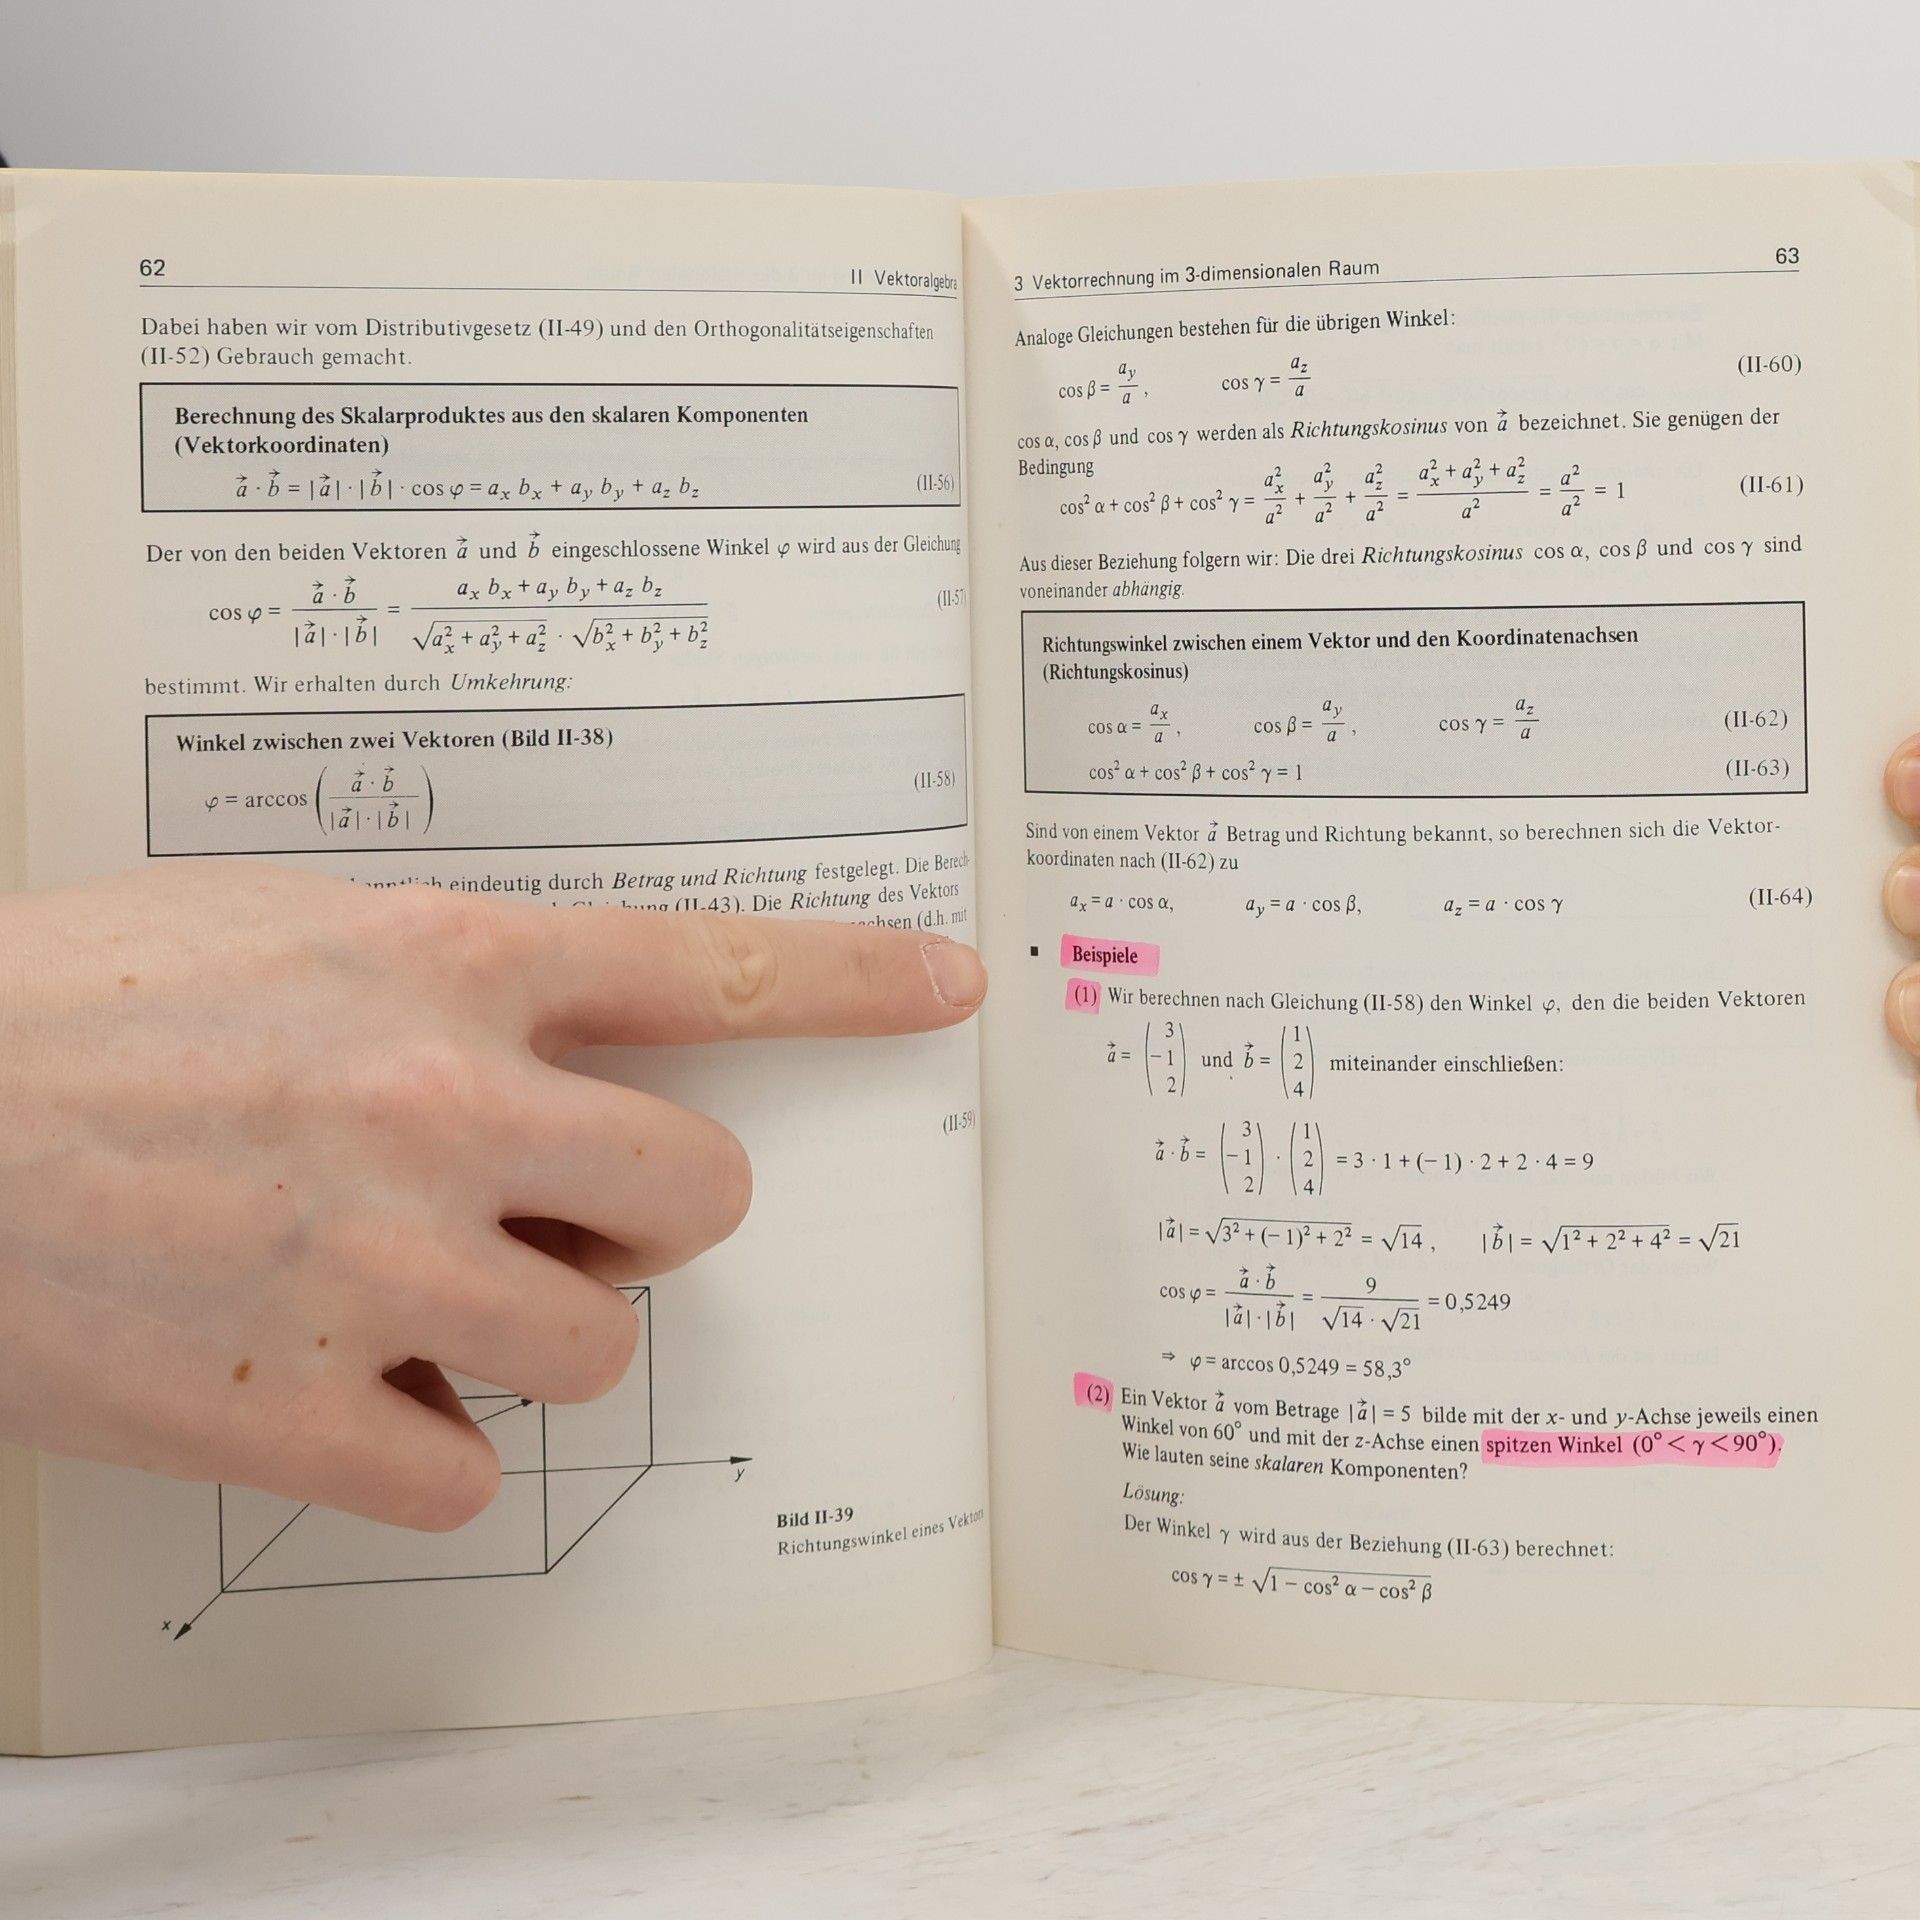 62
II Vektoralgebra
Dabei haben wir vom Distributivgesetz (II-49) und den Orthogonalitätseigenschaften
(II-52) Gebrauch gemacht.
Berechnung des Skalarproduktes aus den skalaren Komponenten
(Vektorkoordinaten)
a⃗ · b⃗ = |a⃗| · |b⃗| · cos φ = aₓ bₓ + a_y b_y + a_z b_z (II-56)
Der von den beiden Vektoren a⃗ und b⃗ eingeschlossene Winkel φ wird aus der Gleichung
cos φ = (a⃗ · b⃗)/(|a⃗| · |b⃗|) = (aₓ bₓ + a_y b_y + a_z b_z)/(√(aₓ² + a_y² + a_z²) · √(bₓ² + b_y² + b_z²)) (II-57)
bestimmt. Wir erhalten durch Umkehrung:
Winkel zwischen zwei Vektoren (Bild II-38)
φ = arccos ((a⃗ · b⃗)/(|a⃗| · |b⃗|)) (II-58)
eindeutig durch Betrag und Richtung festgelegt. Die Berech-
(II-43). Die Richtung des Vektors
(d.h. mit
(II-59)
y
x
Bild II-39
Richtungswinkel eines Vektors
3 Vektorrechnung im 3-dimensionalen Raum
63
Analoge Gleichungen bestehen für die übrigen Winkel:
cos β = a_y/a, cos γ = a_z/a (II-60)
cos α, cos β und cos γ werden als Richtungskosinus von a⃗ bezeichnet. Sie genügen der
Bedingung
cos² α + cos² β + cos² γ = aₓ²/a² + a_y²/a² + a_z²/a² = (aₓ² + a_y² + a_z²)/a² = a²/a² = 1 (II-61)
Aus dieser Beziehung folgern wir: Die drei Richtungskosinus cos α, cos β und cos γ sind
voneinander abhängig.
Richtungswinkel zwischen einem Vektor und den Koordinatenachsen
(Richtungskosinus)
cos α = aₓ/a, cos β = a_y/a, cos γ = a_z/a (II-62)
cos² α + cos² β + cos² γ = 1 (II-63)
Sind von einem Vektor a⃗ Betrag und Richtung bekannt, so berechnen sich die Vektor-
koordinaten nach (II-62) zu
aₓ = a · cos α, a_y = a · cos β, a_z = a · cos γ (II-64)
■ Beispiele
(1) Wir berechnen nach Gleichung (II-58) den Winkel φ, den die beiden Vektoren
a⃗ = (3 −1 2) und b⃗ = (1 2 4) miteinander einschließen:
a⃗ · b⃗ = (3 −1 2) · (1 2 4) = 3 · 1 + (−1) · 2 + 2 · 4 = 9
|a⃗| = √(3² + (−1)² + 2²) = √14, |b⃗| = √(1² + 2² + 4²) = √21
cos φ = (a⃗ · b⃗)/(|a⃗| · |b⃗|) = 9/(√14 · √21) = 0,5249
⇒ φ = arccos 0,5249 = 58,3°
(2) Ein Vektor a⃗ vom Betrage |a⃗| = 5 bilde mit der x- und y-Achse jeweils einen
Winkel von 60° und mit der z-Achse einen spitzen Winkel (0° < γ < 90°).
Wie lauten seine skalaren Komponenten?
Lösung:
Der Winkel γ wird aus der Beziehung (II-63) berechnet:
cos γ = ± √(1 − cos² α − cos² β)